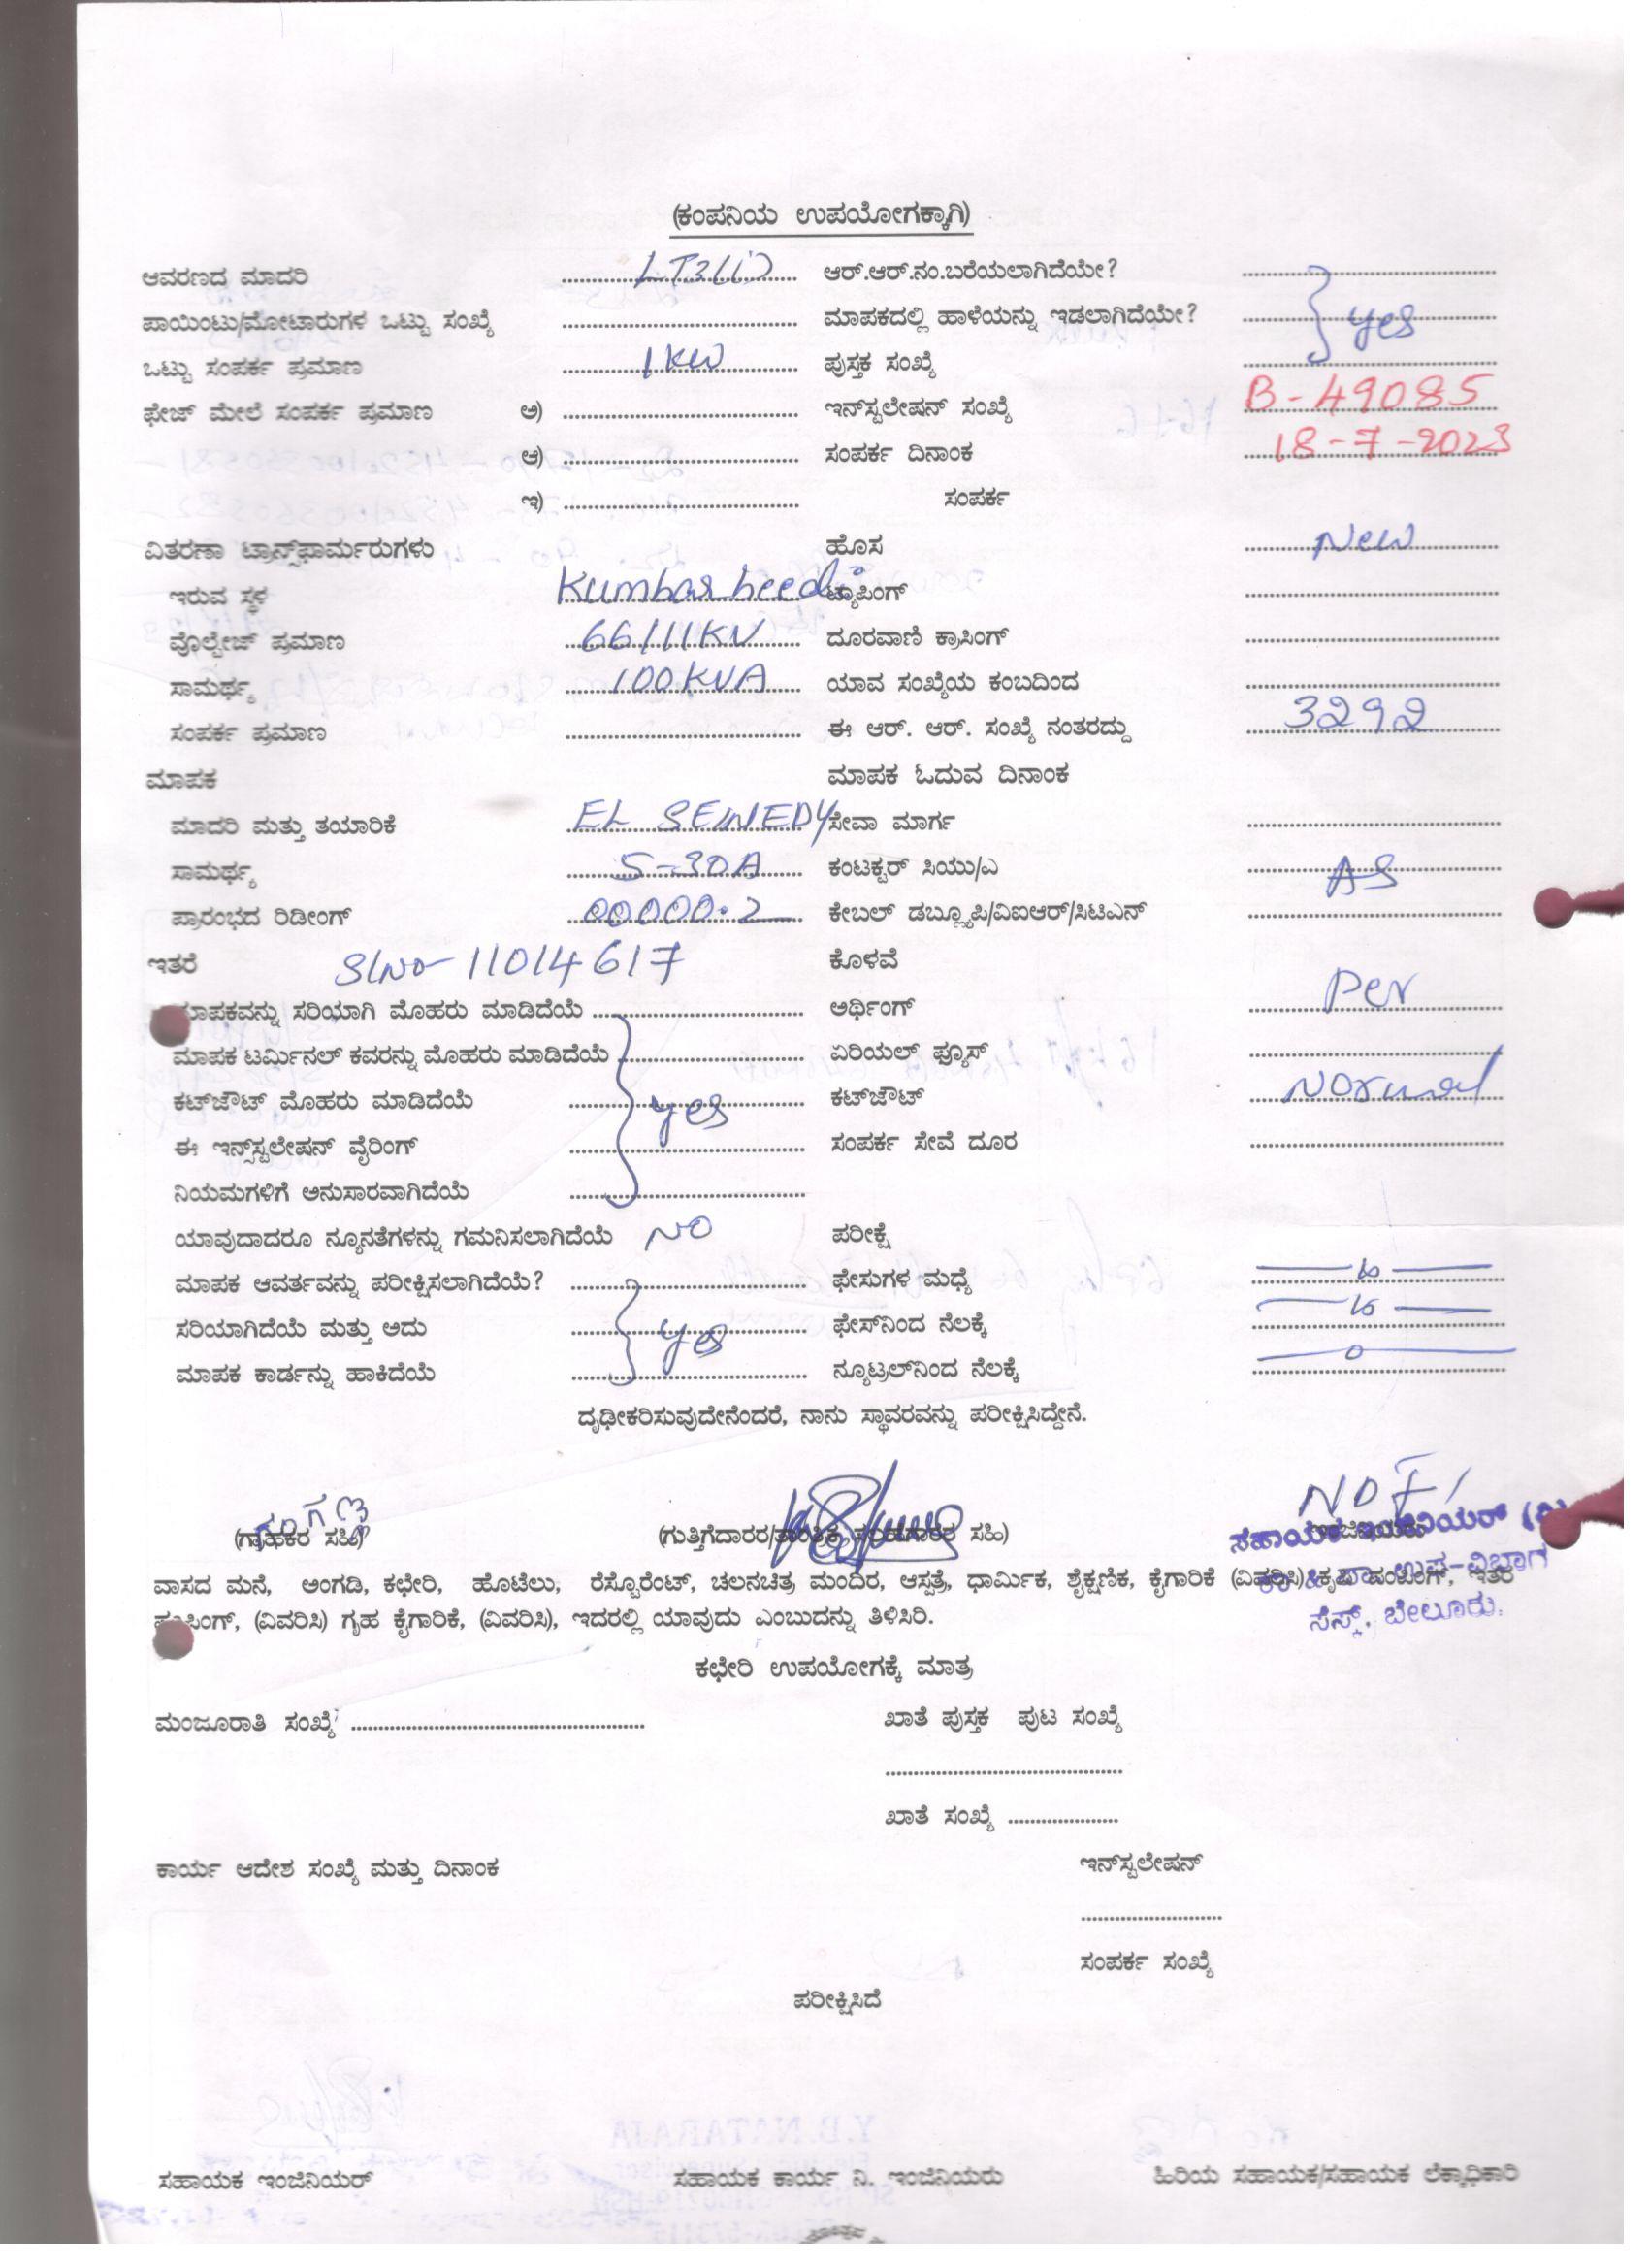 (ಕಂಪನಿಯ ಉಪಯೋಗಕ್ಕಾಗಿ)
ಆವರಣದ ಮಾದರಿ ಆರ್.ಆರ್.ನಂ.ಬರೆಯಲಾಗಿದೆಯೇ?
ಪಾಯಿಂಟು/ಮೋಟಾರುಗಳ ಒಟ್ಟು ಸಂಖ್ಯೆ ಮಾಪಕದಲ್ಲಿ ಹಾಳೆಯನ್ನು ಇಡಲಾಗಿದೆಯೇ? yes
ಒಟ್ಟು ಸಂಪರ್ಕ ಪ್ರಮಾಣ 1KW ಪುಸ್ತಕ ಸಂಖ್ಯೆ
ಫೇಜ್ ಮೇಲೆ ಸಂಪರ್ಕ ಪ್ರಮಾಣ ಅ) ಇನ್‌ಸ್ಟಲೇಷನ್ ಸಂಖ್ಯೆ B-49085
ಆ) ಸಂಪರ್ಕ ದಿನಾಂಕ 18-7-2023
ಇ) ಸಂಪರ್ಕ
ವಿತರಣಾ ಟ್ರಾನ್ಸ್‌ಫಾರ್ಮರುಗಳು ಹೊಸ New
ಇರುವ ಸ್ಥಳ Kumbar beedi ಟ್ಯಾಪಿಂಗ್
ವೊಲ್ಟೇಜ್ ಪ್ರಮಾಣ 66/11KV ದೂರವಾಣಿ ಕ್ರಾಸಿಂಗ್
ಸಾಮರ್ಥ್ಯ 100KVA ಯಾವ ಸಂಖ್ಯೆಯ ಕಂಬದಿಂದ
ಸಂಪರ್ಕ ಪ್ರಮಾಣ ಈ ಆರ್. ಆರ್. ಸಂಖ್ಯೆ ನಂತರದ್ದು 3292
ಮಾಪಕ ಮಾಪಕ ಓದುವ ದಿನಾಂಕ
ಮಾದರಿ ಮತ್ತು ತಯಾರಿಕೆ EL SEWEDY ಸೇವಾ ಮಾರ್ಗ
ಸಾಮರ್ಥ್ಯ 5-30A ಕಂಟಕ್ಟರ್ ಸಿಯು/ಎ AS
ಪ್ರಾರಂಭದ ರಿಡೀಂಗ್ 00000.2 ಕೇಬಲ್ ಡಬ್ಲ್ಯೂಪಿ/ವಿಐಆರ್/ಸಿಟಿಎನ್
ಇತರೆ SlNo-11014617 ಕೊಳವೆ
ಮಾಪಕವನ್ನು ಸರಿಯಾಗಿ ಮೊಹರು ಮಾಡಿದೆಯೆ ಅರ್ಥಿಂಗ್ Per
ಮಾಪಕ ಟರ್ಮಿನಲ್ ಕವರನ್ನು ಮೊಹರು ಮಾಡಿದೆಯೆ ಏರಿಯಲ್ ಫ್ಯೂಸ್
ಕಟ್‌ಔಟ್ ಮೊಹರು ಮಾಡಿದೆಯೆ yes ಕಟ್‌ಔಟ್ Normal
ಈ ಇನ್ಸ್‌ಸ್ಟಲೇಷನ್ ವೈರಿಂಗ್ ಸಂಪರ್ಕ ಸೇವೆ ದೂರ
ನಿಯಮಗಳಿಗೆ ಅನುಸಾರವಾಗಿದೆಯೆ
ಯಾವುದಾದರೂ ನ್ಯೂನತೆಗಳನ್ನು ಗಮನಿಸಲಾಗಿದೆಯೆ NO ಪರೀಕ್ಷೆ
ಮಾಪಕ ಆವರ್ತವನ್ನು ಪರೀಕ್ಷಿಸಲಾಗಿದೆಯೆ? ಫೇಸುಗಳ ಮಧ್ಯೆ
ಸರಿಯಾಗಿದೆಯೆ ಮತ್ತು ಅದು yes ಫೇಸ್‌ನಿಂದ ನೆಲಕ್ಕೆ
ಮಾಪಕ ಕಾರ್ಡನ್ನು ಹಾಕಿದೆಯೆ ನ್ಯೂಟ್ರಲ್‌ನಿಂದ ನೆಲಕ್ಕೆ 0
ದೃಢೀಕರಿಸುವುದೇನೆಂದರೆ, ನಾನು ಸ್ಥಾವರವನ್ನು ಪರೀಕ್ಷಿಸಿದ್ದೇನೆ.
(ಗ್ರಾಹಕರ ಸಹಿ) (ಗುತ್ತಿಗೆದಾರರ/ ಸಹಿ) ಸಹಾಯಕ ಇಂಜಿನಿಯರ್
ವಾಸದ ಮನೆ, ಅಂಗಡಿ, ಕಛೇರಿ, ಹೊಟೆಲು, ರೆಸ್ಟೊರೆಂಟ್, ಚಲನಚಿತ್ರ ಮಂದಿರ, ಆಸ್ಪತ್ರೆ, ಧಾರ್ಮಿಕ, ಶೈಕ್ಷಣಿಕ, ಕೈಗಾರಿಕೆ (ವಿವರಿಸಿ) ಇತರ
ಉಪ-ವಿಭಾಗ
ಹೌಸಿಂಗ್, (ವಿವರಿಸಿ) ಗೃಹ ಕೈಗಾರಿಕೆ, (ವಿವರಿಸಿ), ಇದರಲ್ಲಿ ಯಾವುದು ಎಂಬುದನ್ನು ತಿಳಿಸಿರಿ. ಸೆಸ್ಕ್, ಬೇಲೂರು.
ಕಛೇರಿ ಉಪಯೋಗಕ್ಕೆ ಮಾತ್ರ
ಮಂಜೂರಾತಿ ಸಂಖ್ಯೆ ಖಾತೆ ಪುಸ್ತಕ ಪುಟ ಸಂಖ್ಯೆ
ಖಾತೆ ಸಂಖ್ಯೆ
ಕಾರ್ಯ ಆದೇಶ ಸಂಖ್ಯೆ ಮತ್ತು ದಿನಾಂಕ ಇನ್‌ಸ್ಟಲೇಷನ್
ಸಂಪರ್ಕ ಸಂಖ್ಯೆ
ಪರೀಕ್ಷಿಸಿದೆ
ಸಹಾಯಕ ಇಂಜಿನಿಯರ್ ಸಹಾಯಕ ಕಾರ್ಯ ನಿ. ಇಂಜಿನಿಯರು ಹಿರಿಯ ಸಹಾಯಕ/ಸಹಾಯಕ ಲೆಕ್ಕಾಧಿಕಾರಿ